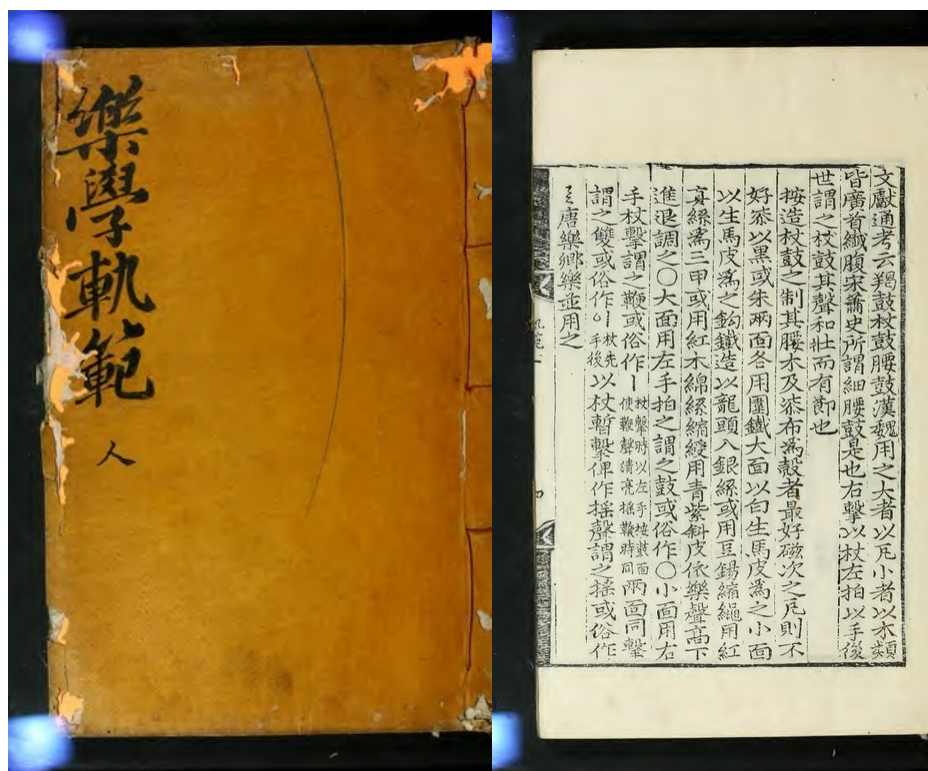 樂學軌範
人
文獻通考云羯鼓杖鼓腰鼓漢魏用之大者以瓦小者以木類
皆廣首纖腹宋蕭史所謂細腰鼓是也右擊以杖左拍以手後
世謂之杖鼓其聲和壯而有節也
按造杖鼓之制其腰木及漆布為殼者最好磁次之瓦則不
好漆以黑或朱兩面各用圍鐵大面以白生馬皮為之小面
以生馬皮為之鉤鐵造以龍頭入銀絲或用豆錫縮繩用紅
真絲為三甲或用紅木綿絲縮綬用青紫斜皮依樂聲高下
進退調之〇大面用左手拍之謂之鼓或俗作〇小面用右
手杖擊謂之鞭或俗作〡杖擊時以左手按鼓面使鞭聲淸亮搖鞭時同兩面同擊
謂之雙或俗作杖先手後以杖暫擊俾作搖聲謂之搖或俗作
唐樂鄕樂並用之